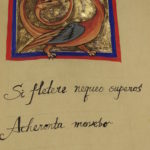 Si fletere nequeo superos
Acheronta movebo